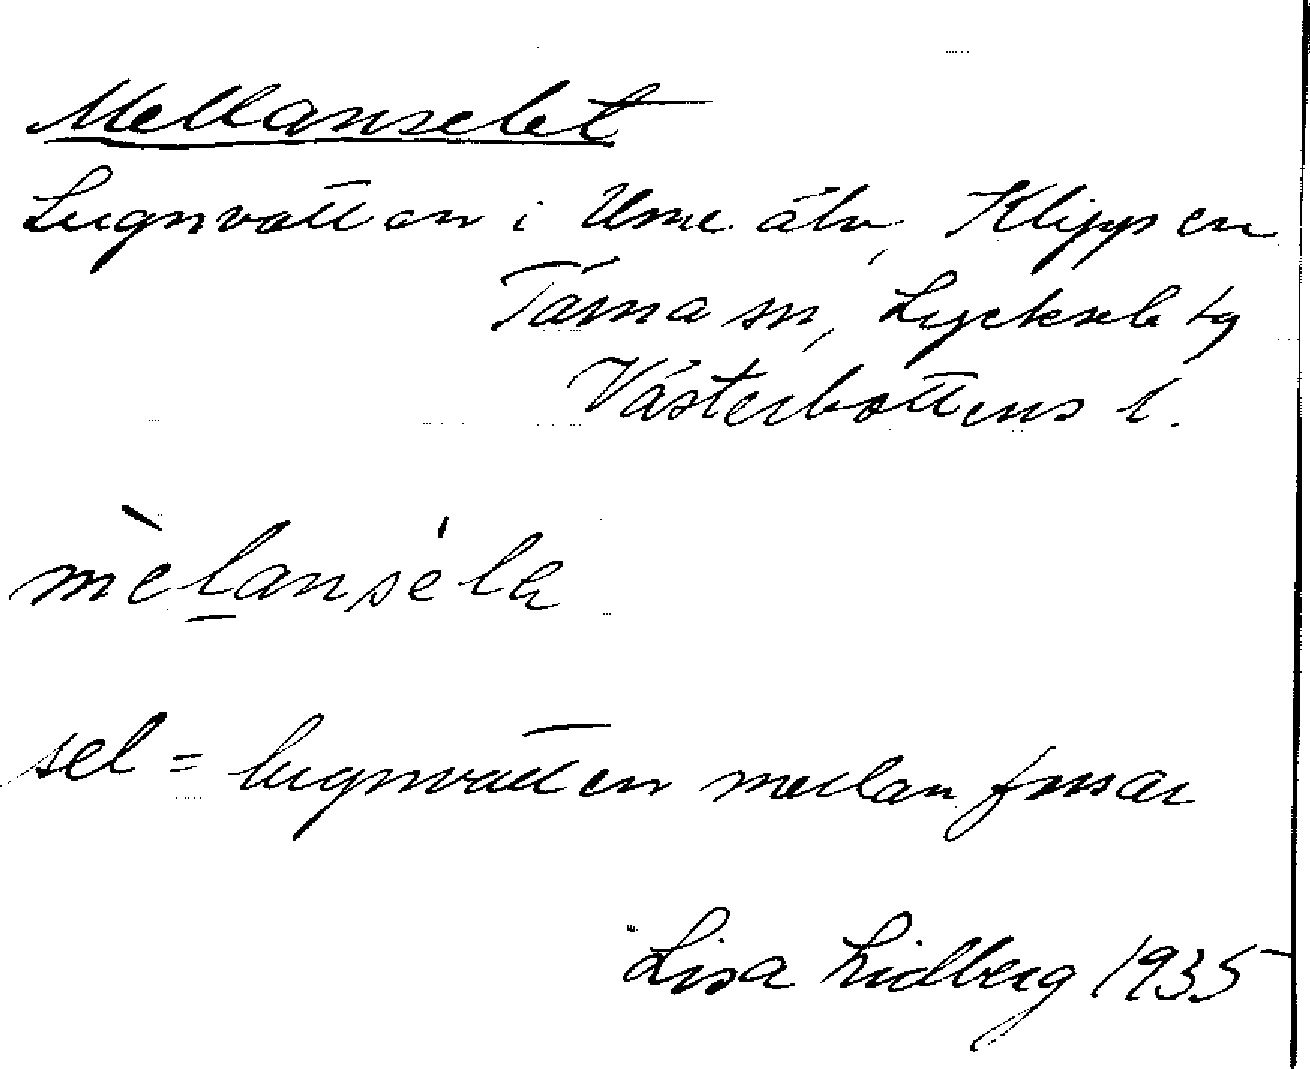 Mellanselet
Lugnvatten i Ume älv, Klippen
Tärna sn, Lycksele tg
Västerbottens l.
mèlansélą
sel = lugnvatten mellan forsar
Lisa Lidberg 1935